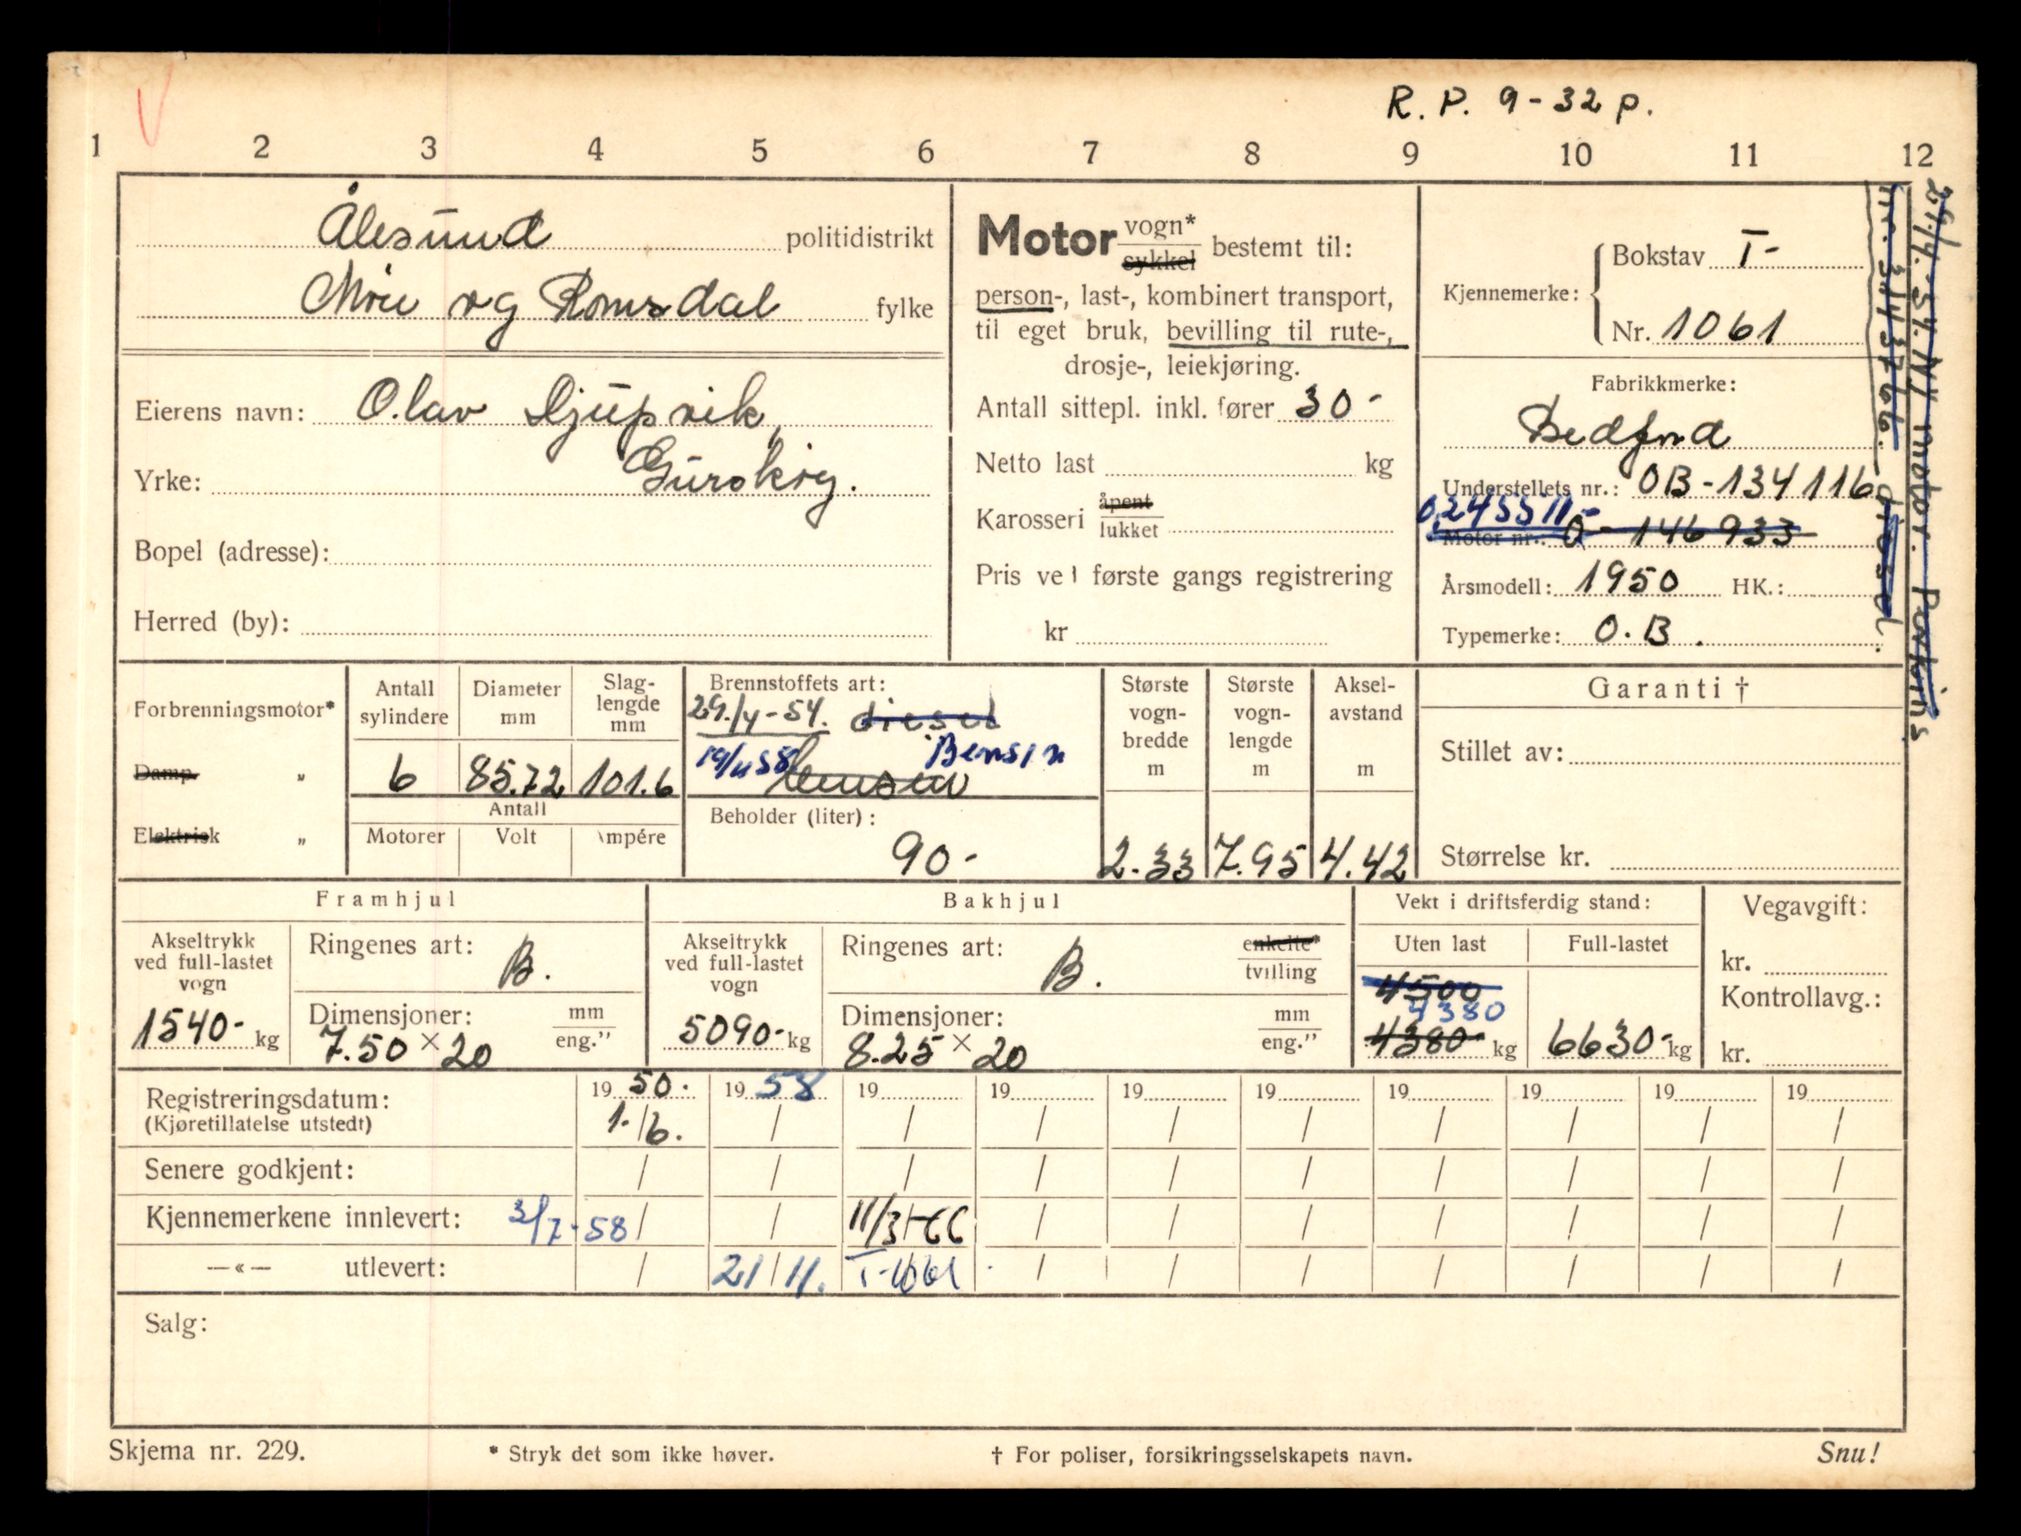 R. P. 9-32 p.
1 2 3 4 5 6 7 8 9 10 11 12
Ålesund politidistrikt
Møre og Romsdal fylke
Eierens navn: Olav Djupvik,
Yrke: Gurskøy.
Bopel (adresse):
Herred (by):
Motor vogn* sykkel bestemt til:
person-, last-, kombinert transport,
til eget bruk, bevilling til rute-,
drosje-, leiekjøring.
Antall sittepl. inkl. fører 30-
Netto last kg
Karosseri åpent lukket
Pris ved første gangs registrering
kr
Kjennemerke: Bokstav T-
Nr. 1061
Fabrikkmerke:
Bedford
Understellets nr.: OB-134116
0,245511-
Motor nr.: O-146933
Årsmodell: 1950 HK.:
Typemerke: O.B.
29/4-54. Ny motor. Perkins
nr. 3143766. diesel.
Forbrenningsmotor*
Damp „
Elektrisk „
Antall sylindere
6
Diameter mm
85.72
Slag- lengde mm
101.6
Antall
Motorer Volt Ampére
Brennstoffets art:
29./4-54. diesel
19/11 58 Bensin
bensin
Beholder (liter):
90-
Største vogn- bredde m
2.33
Største vogn- lengde m
7.95
Aksel- avstand m
4.42
Garanti †
Stillet av:
Størrelse kr.
Framhjul
Akseltrykk ved full-lastet vogn
1540- kg
Ringenes art: B.
Dimensjoner: mm eng.”
7.50 × 20
Bakhjul
Akseltrykk ved full-lastet vogn
5090- kg
Ringenes art: B. enkelte* tvilling
Dimensjoner: mm eng.”
8.25 × 20
Vekt i driftsferdig stand:
Uten last Full-lastet
4500
4380
4380- kg 6630- kg
Vegavgift:
kr.
Kontrollavg.:
kr.
Registreringsdatum: 1950. 1958 19 19 19 19 19 19 19 19
(Kjøretillatelse utstedt) 1./6. / / / / / / / / /
Senere godkjent: / / / / / / / / / /
Kjennemerkene innlevert: 3/7-58 / / 11/3-66 / / / / / / /
—«— utlevert: / 21/11. T-1061 / / / / / / /
Salg:
Skjema nr. 229. * Stryk det som ikke høver. † For poliser, forsikringsselskapets navn. Snu!